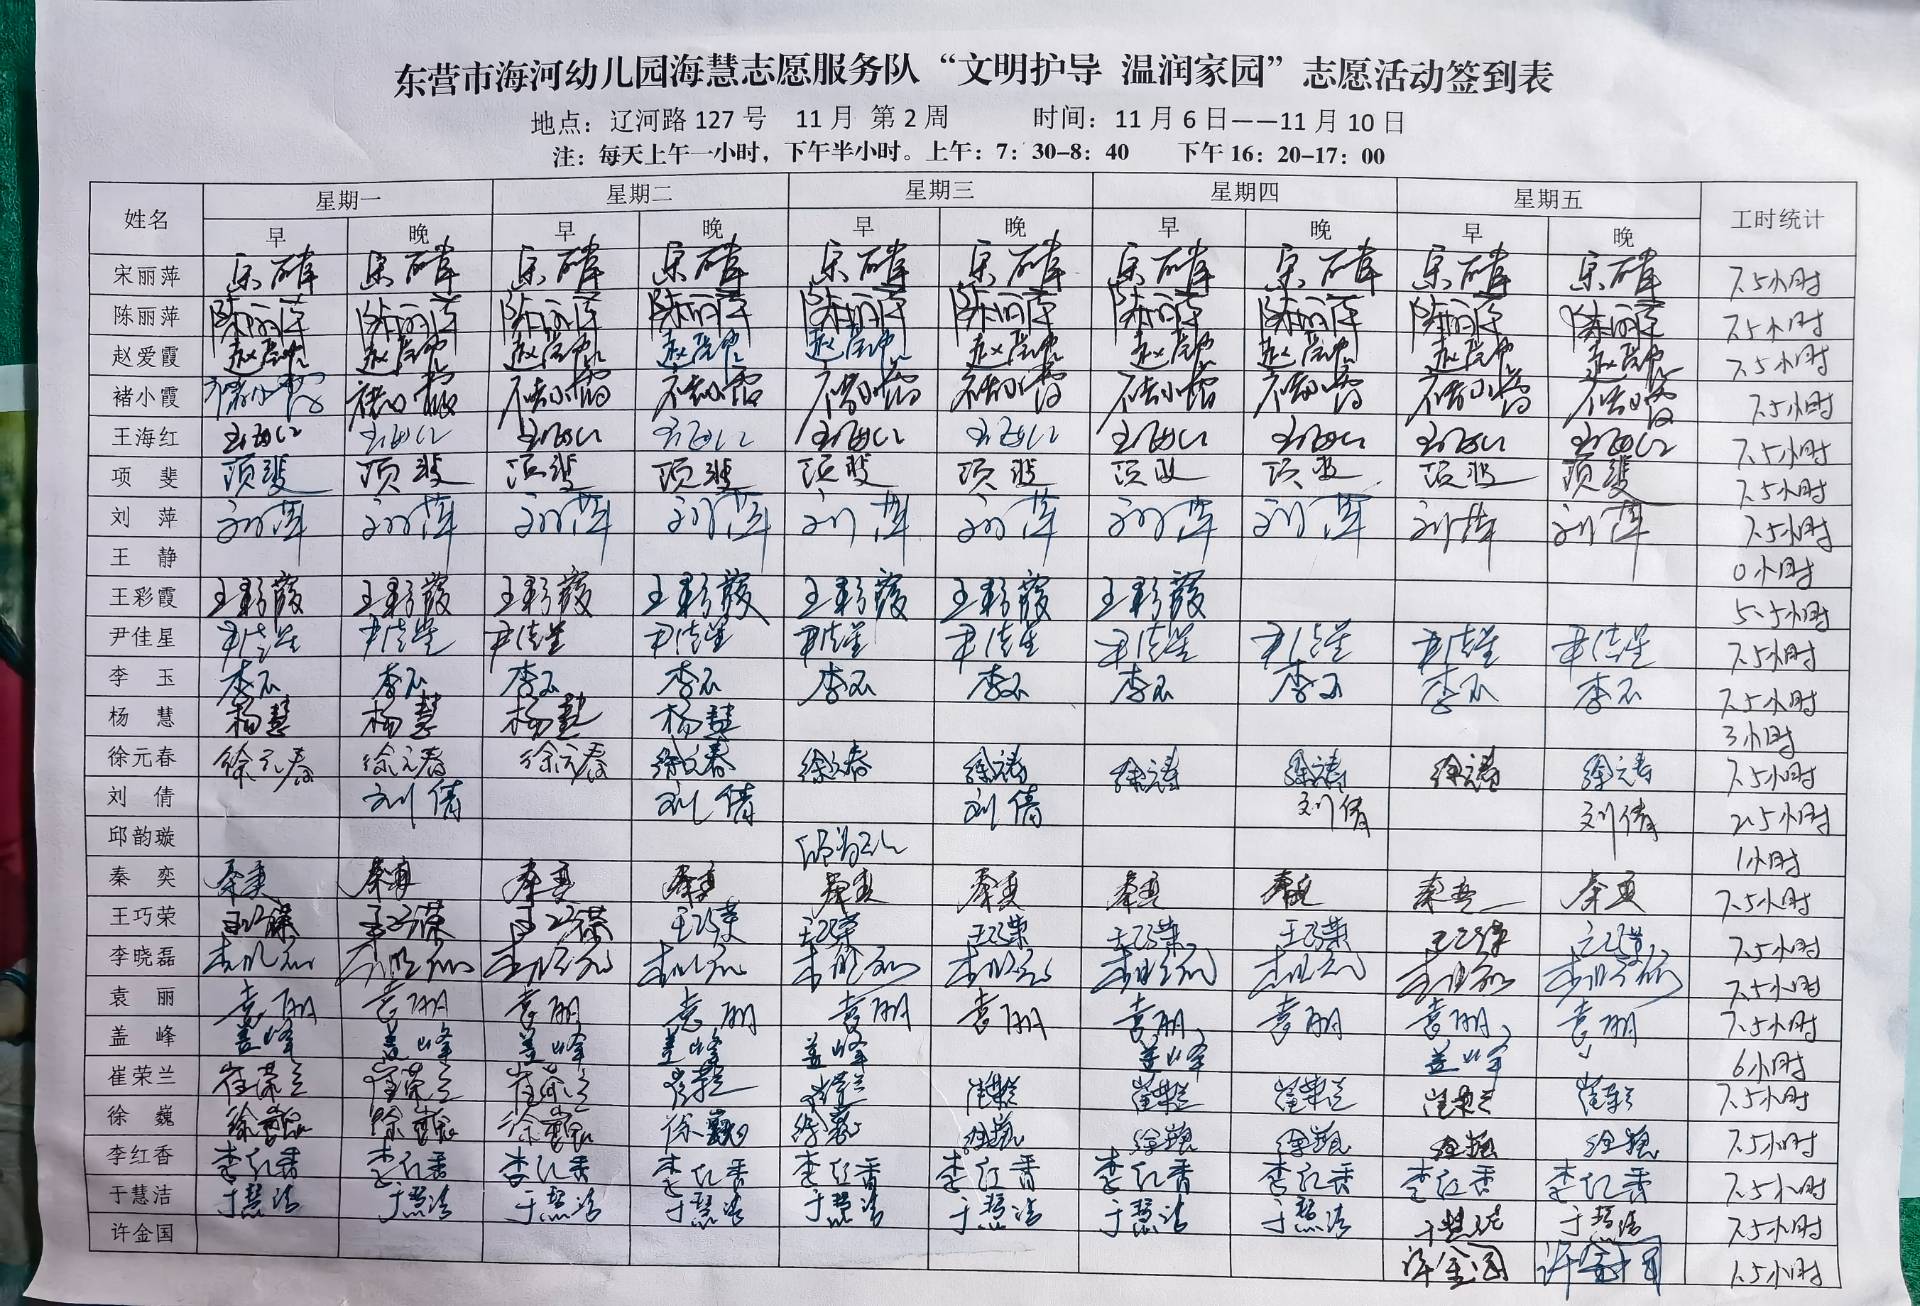 东营市海河幼儿园海慧志愿服务队“文明护导 温润家园”志愿活动签到表
地点：辽河路127号 11月 第2周 时间：11月6日——11月10日
注：每天上午一小时，下午半小时。上午：7：30-8：40 下午16：20-17：00
姓名 星期一 星期二 星期三 星期四 星期五 工时统计
早 晚 早 晚 早 晚 早 晚 早 晚
宋丽萍 7.5小时
陈丽萍 陈丽萍 陈丽萍 陈丽萍 陈丽萍 陈丽萍 陈丽萍 陈丽萍 陈丽萍 陈丽萍 陈丽萍 7.5小时
赵爱霞 赵爱霞 赵爱霞 赵爱霞 赵爱霞 赵爱霞 赵爱霞 赵爱霞 赵爱霞 赵爱霞 赵爱霞 7.5小时
褚小霞 褚小霞 褚小霞 褚小霞 褚小霞 褚小霞 褚小霞 褚小霞 褚小霞 褚小霞 褚小霞 7.5小时
王海红 王海红 王海红 王海红 王海红 王海红 王海红 王海红 王海红 王海红 王海红 7.5小时
项斐 项斐 项斐 项斐 项斐 项斐 项斐 项斐 项斐 项斐 项斐 7.5小时
刘萍 刘萍 刘萍 刘萍 刘萍 刘萍 刘萍 刘萍 刘萍 刘萍 刘萍 7.5小时
王静 0小时
王彩霞 王彩霞 王彩霞 王彩霞 王彩霞 王彩霞 王彩霞 王彩霞 5.5小时
尹佳星 尹佳星 尹佳星 尹佳星 尹佳星 尹佳星 尹佳星 尹佳星 尹佳星 尹佳星 尹佳星 7.5小时
李玉 李玉 李玉 李玉 李玉 李玉 李玉 李玉 李玉 李玉 李玉 7.5小时
杨慧 杨慧 杨慧 杨慧 杨慧 3小时
徐元春 徐元春 徐元春 徐元春 徐元春 徐元春 徐元春 徐元春 徐元春 徐元春 徐元春 7.5小时
刘倩 刘倩 刘倩 刘倩 刘倩 刘倩 2.5小时
邱韵璇 1小时
秦奕 秦奕 秦奕 秦奕 秦奕 秦奕 秦奕 秦奕 秦奕 秦奕 秦奕 7.5小时
王巧荣 王巧荣 王巧荣 王巧荣 王巧荣 王巧荣 王巧荣 王巧荣 王巧荣 王巧荣 王巧荣 7.5小时
李晓磊 李晓磊 李晓磊 李晓磊 李晓磊 李晓磊 李晓磊 李晓磊 李晓磊 李晓磊 李晓磊 7.5小时
袁丽 袁丽 袁丽 袁丽 袁丽 袁丽 袁丽 袁丽 袁丽 袁丽 袁丽 7.5小时
盖峰 盖峰 盖峰 盖峰 盖峰 盖峰 盖峰 盖峰 6小时
崔荣兰 崔荣兰 崔荣兰 崔荣兰 崔荣兰 崔荣兰 崔荣兰 崔荣兰 崔荣兰 崔荣兰 崔荣兰 7.5小时
徐巍 徐巍 徐巍 徐巍 徐巍 徐巍 徐巍 徐巍 徐巍 徐巍 徐巍 7.5小时
李红香 李红香 李红香 李红香 李红香 李红香 李红香 李红香 李红香 李红香 李红香 7.5小时
于慧洁 于慧洁 于慧洁 于慧洁 于慧洁 于慧洁 于慧洁 于慧洁 于慧洁 于慧洁 于慧洁 7.5小时
许金国 许金国 许金国 1.5小时